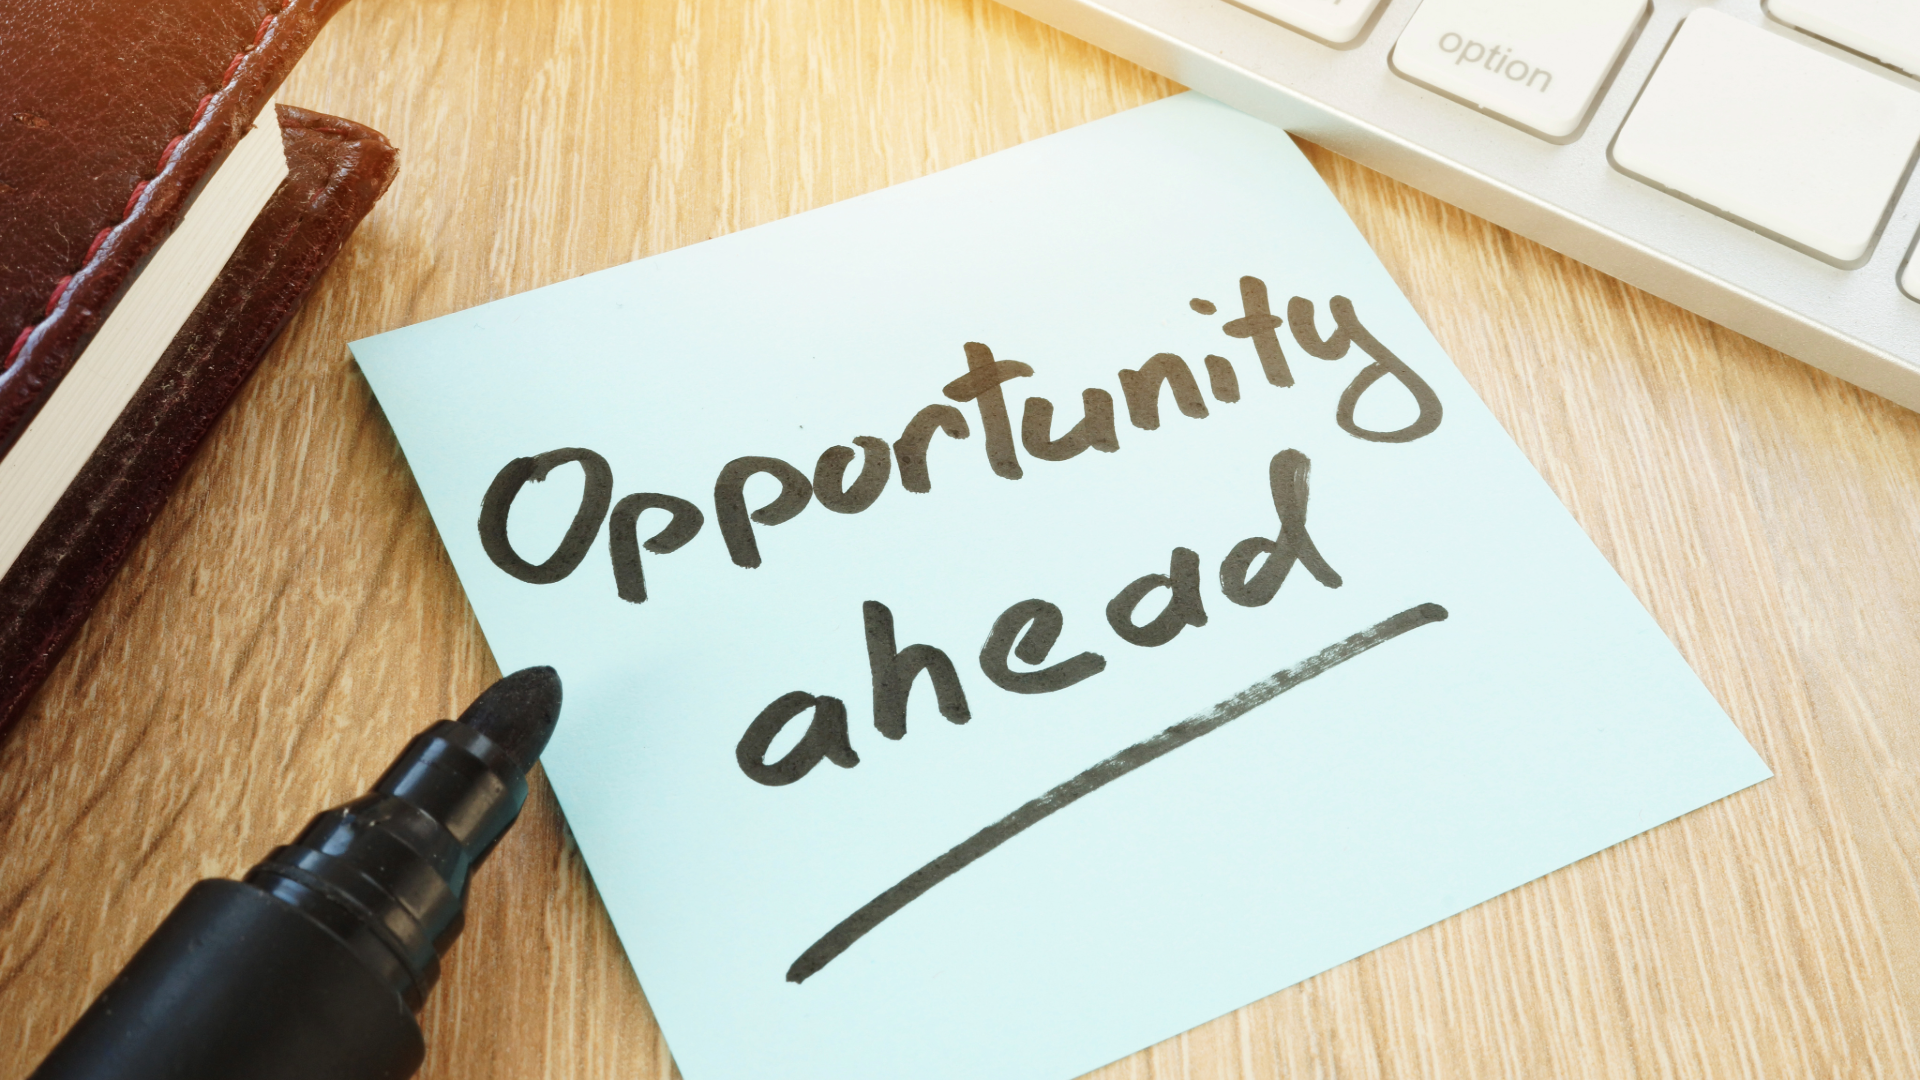 option
Opportunity
ahead